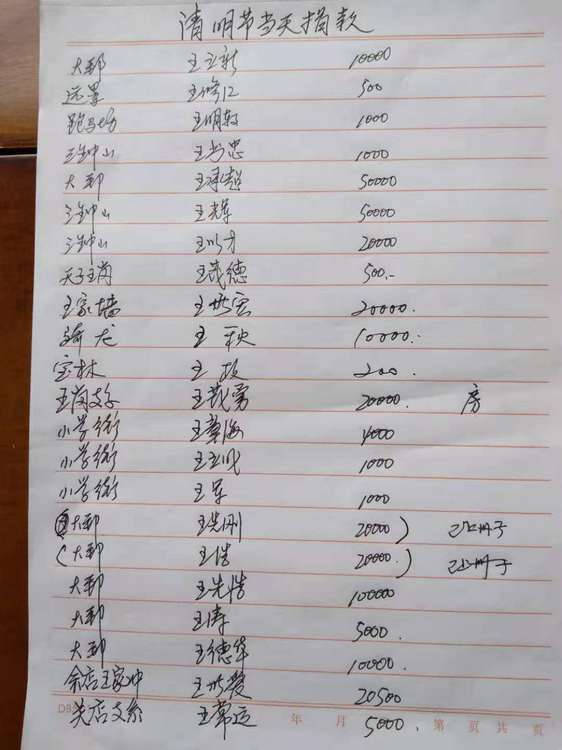 清明节当天捐款
大郢 王立新 10000
远景 王修江 500
跑马场 王明轩 1000
三钟山 王为忠 1000
大郢 王承超 50000
三钟山 王辉 50000
三钟山 王以才 20000
天子王岗 王茂德 500.-
王家墙 王世宝 20000.
骑龙 王秋 10000.
宝林 王 200.
王岗支子 王茂勇 20000. 房
小学街 王华海 4000
小学街 王立 1000
小学街 王军 1000
大郢 王先刚 20000) 已上册子
(大郢 王浩 20000.) 已上册子
大郢 王先浩 100000
大郢 王涛 5000.
大郢 王德华 10000.
余店王家冲 王世发 20500
关店支系 王常运 5000.
年 月 第 页 共 页